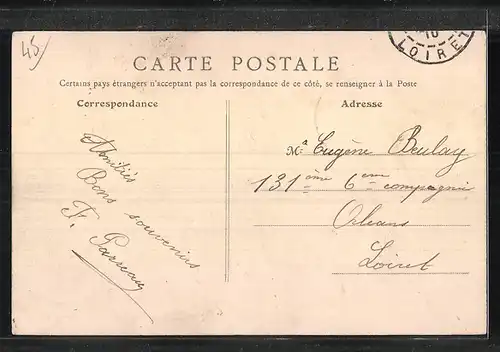 45
10
LOIRET
CARTE POSTALE
Certains pays étrangers n'acceptant pas la correspondance de ce côté, se renseigner à la Poste
Correspondance
Adresse
Amitiés
Bons souvenirs
F.
M. Eugène Beulay
131ème 6eme compagnie
Orleans
Loiret